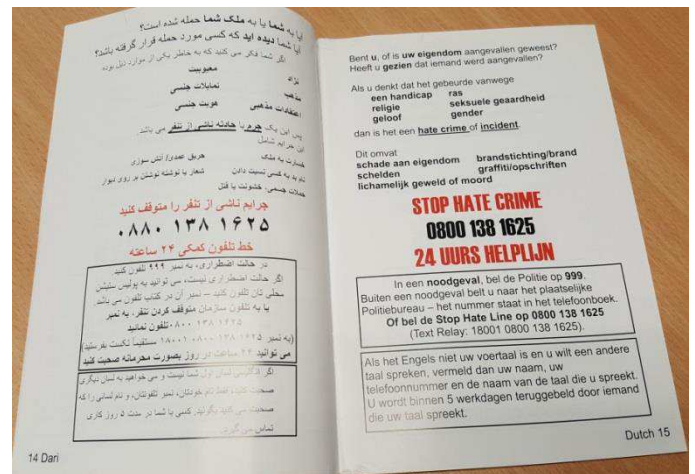 آیا به شما یا به ملک شما حمله شده است؟
آیا شما دیده اید که کسی مورد حمله قرار گرفته باشد؟
اگر شما فکر می کنید که به خاطر یکی از موارد ذیل بوده
نژاد معیوبیت
مذهب تمایلات جنسی
اعتقادات مذهبی هویت جنسی
پس این یک جرم یا حادثه ناشی از تنفر می باشد
این جرایم شامل
خسارت به ملک حریق عمدی/ آتش سوزی
نام بد به کسی نسبت دادن شعار یا نوشته نوشتن بر روی دیوار
حملات جسمی، خشونت یا قتل
جرایم ناشی از تنفر را متوقف کنید
۰۸۸۰ ۱۳۸ ۱۶۲۵
خط تلفون کمکی ۲۴ ساعته
در حالت اضطراری، به نمبر ۹۹۹ تلفون کنید
اگر حالت اضطراری نیست، می توانید به پولیس ستیشن
محلی تان تلفون کنید – نمبر آن در کتاب تلفون می باشد
یا به تلفون سازمان متوقف کردن تنفر، به نمبر
۰۸۰۰ ۱۳۸ ۱۶۲۵ تلفون نمائید
(به نمبر ۱۸۰۰۱۰۸۰۰ ۱۳۸ ۱۶۲۵ مستقیماً تکست بفرستید)
می توانید ۲۴ ساعت در روز بصورت محرمانه صحبت کنید
اگر انگلیسی لسان اول شما نیست و می خواهید به لسان دیگری
صحبت کنید، فقط نام خودتان، نمبر تلفونتان، و نام لسانی را که
صحبت می کنید بگوئید. کسی با شما در مدت ۵ روز کاری
تماس می گیرد.
14 Dari
Bent u, of is uw eigendom aangevallen geweest?
Heeft u gezien dat iemand werd aangevallen?
Als u denkt dat het gebeurde vanwege
een handicap ras
religie seksuele geaardheid
geloof gender
dan is het een hate crime of incident.
Dit omvat
schade aan eigendom brandstichting/brand
schelden graffiti/opschriften
lichamelijk geweld of moord
STOP HATE CRIME
0800 138 1625
24 UURS HELPLIJN
In een noodgeval, bel de Politie op 999.
Buiten een noodgeval belt u naar het plaatselijke
Politiebureau – het nummer staat in het telefoonboek.
Of bel de Stop Hate Line op 0800 138 1625
(Text Relay: 18001 0800 138 1625).
Als het Engels niet uw voertaal is en u wilt een andere
taal spreken, vermeld dan uw naam, uw
telefoonnummer en de naam van de taal die u spreekt.
U wordt binnen 5 werkdagen teruggebeld door iemand
die uw taal spreekt.
Dutch 15